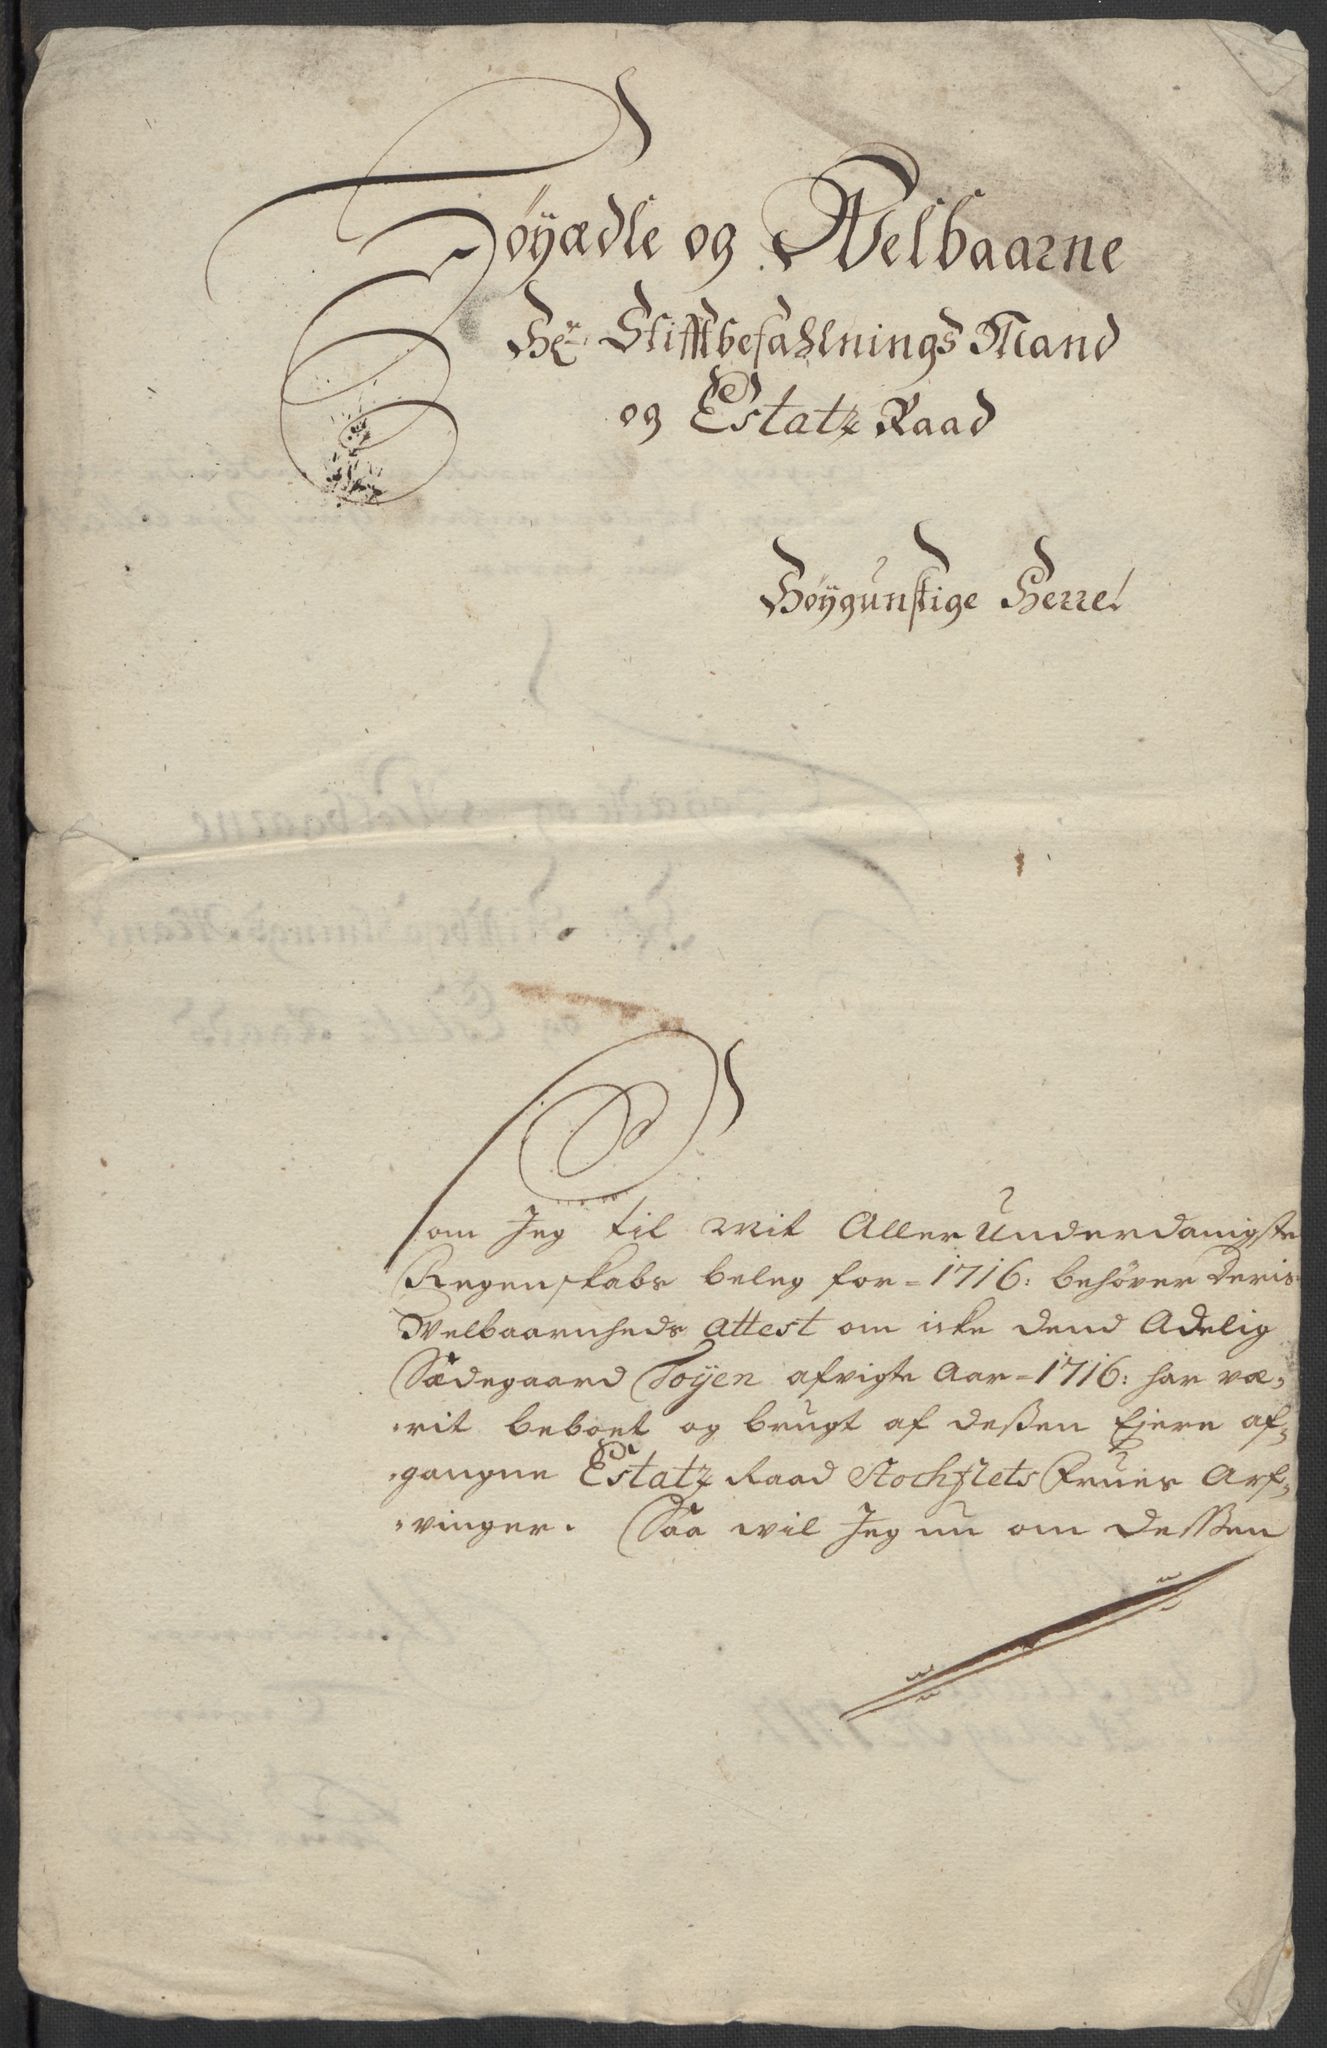 Høyædle og Welbaarne
Hr: Stifftbefahlnings Mand
og Estatz Raad
Høygunstige Herre!
Som Jeg til Mit AllerUnderdanigste
Regenskabs beleg for - 1716: behøver Deris
Welbaarnheds Attest om icke dend Adelig
Sædegaard Tøyen afvigte Aar - 1716: har væ,
,rit beboet og brugt af deßen Ejere af,
,gangne Estatz Raad Stochflets Frues Arf,
,vinger. Saa wil Jeg nu om deßen